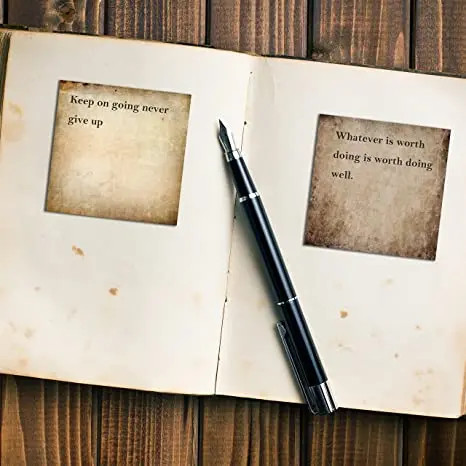 Keep on going never
give up
Whatever is worth
doing is worth doing
well.